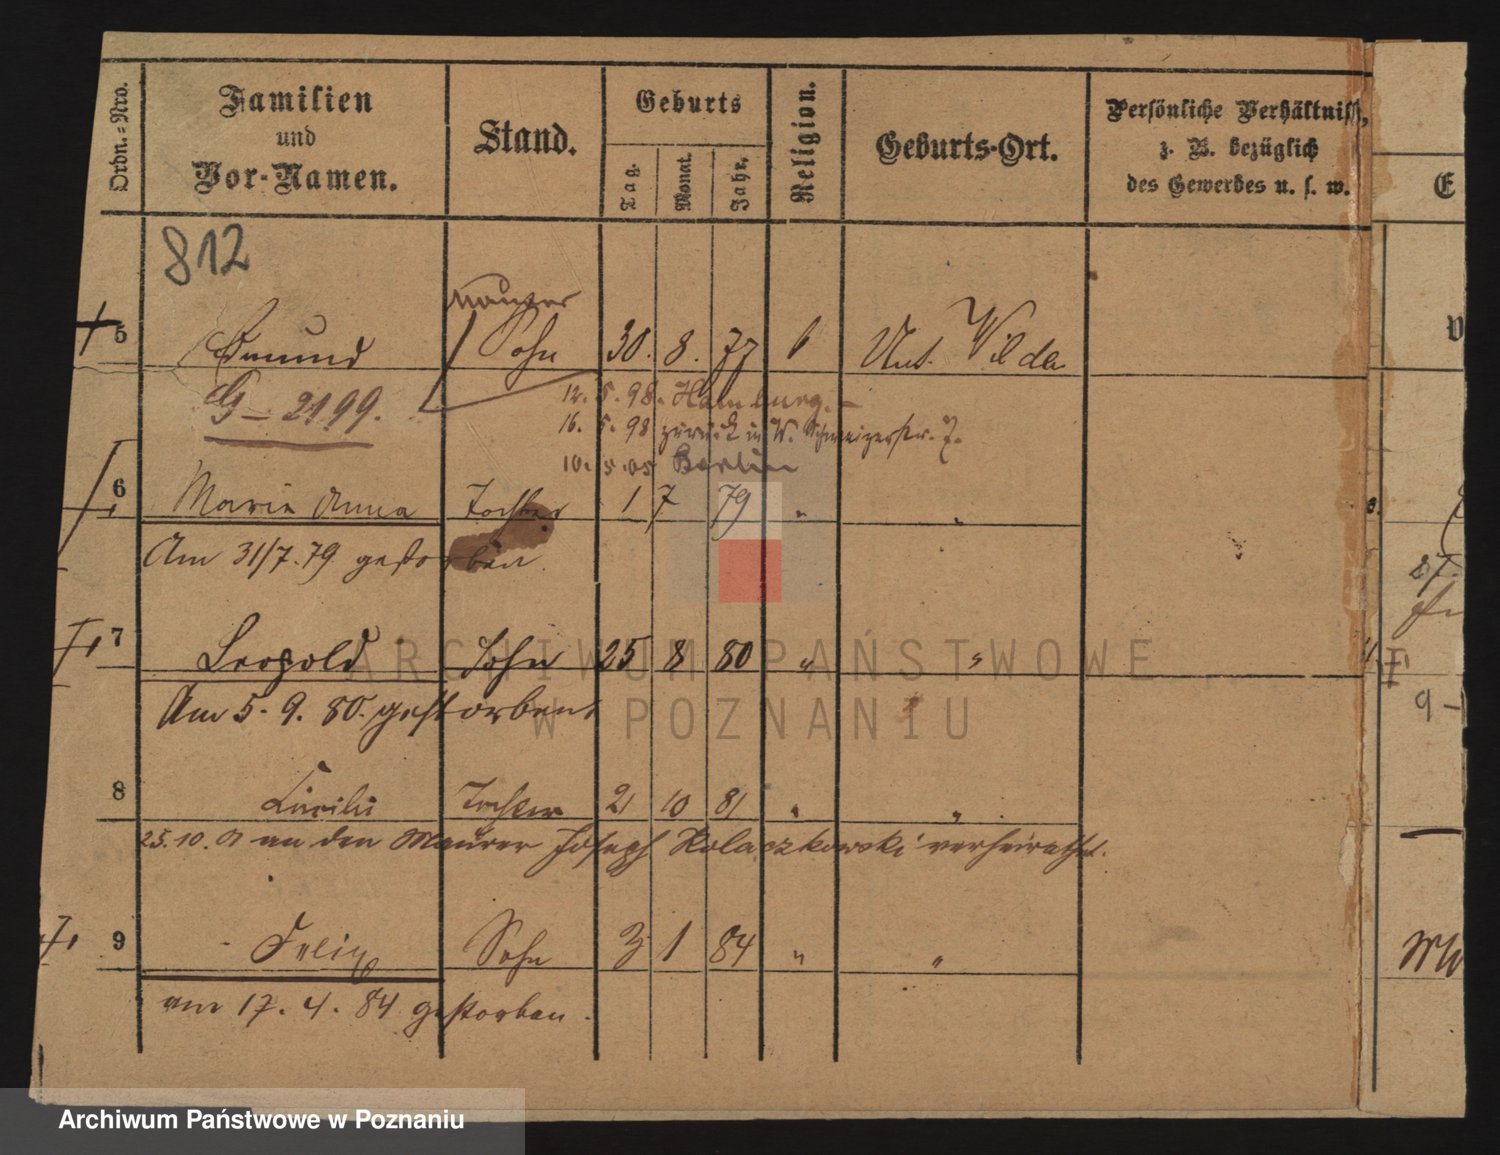 Ordn.=Nro.
Familien
und
Vor-Namen.
Stand.
Geburts
Tag.
Monat.
Jahr.
Religion.
Geburts-Ort.
Persönliche Verhältnisse,
z. B. bezüglich
des Gewerbes u. s. w.
E
812
Maurer
5 Edmund Sohn 30. 8. 77 Unt. Wilda
G - 2199.
12. 5. 98. Hamburg. -
16. 5. 98 zurück in W. Schweizerstr. 7.
10. 5. 05 Berlin
6 Marie Anna Tochter 1 7 79 " "
Am 31/7. 79. gestorben.
7 Leopold Sohn 25 8 80 " "
Am 5. 9. 80. gestorben.
8 Cäcilie Tochter 21 10 81 " "
25. 10. 01 an den Maurer Joseph Kolaczkowski verheirathet.
9 Felix Sohn 3 1 84 " "
am 17. 4. 84 gestorben.
ARCHIWUM PAŃSTWOWE
W POZNANIU
Archiwum Państwowe w Poznaniu